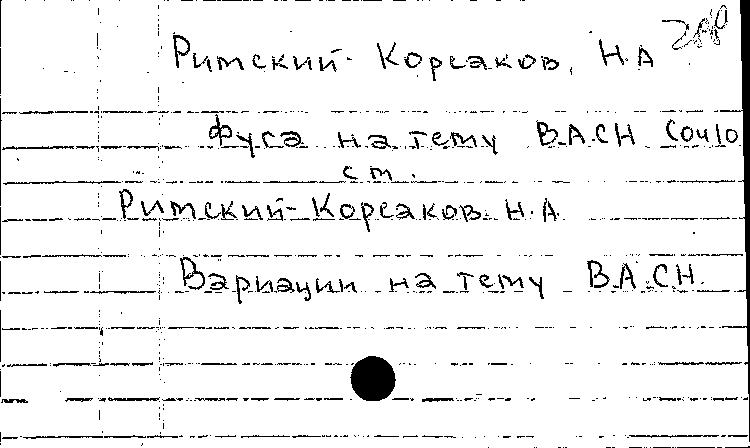 Римский-Корсаков, Н.А
Фуга на тему B.A.CH
см.
Римский-Корсаков. Н.А.
Вариации на тему B.A.CH.